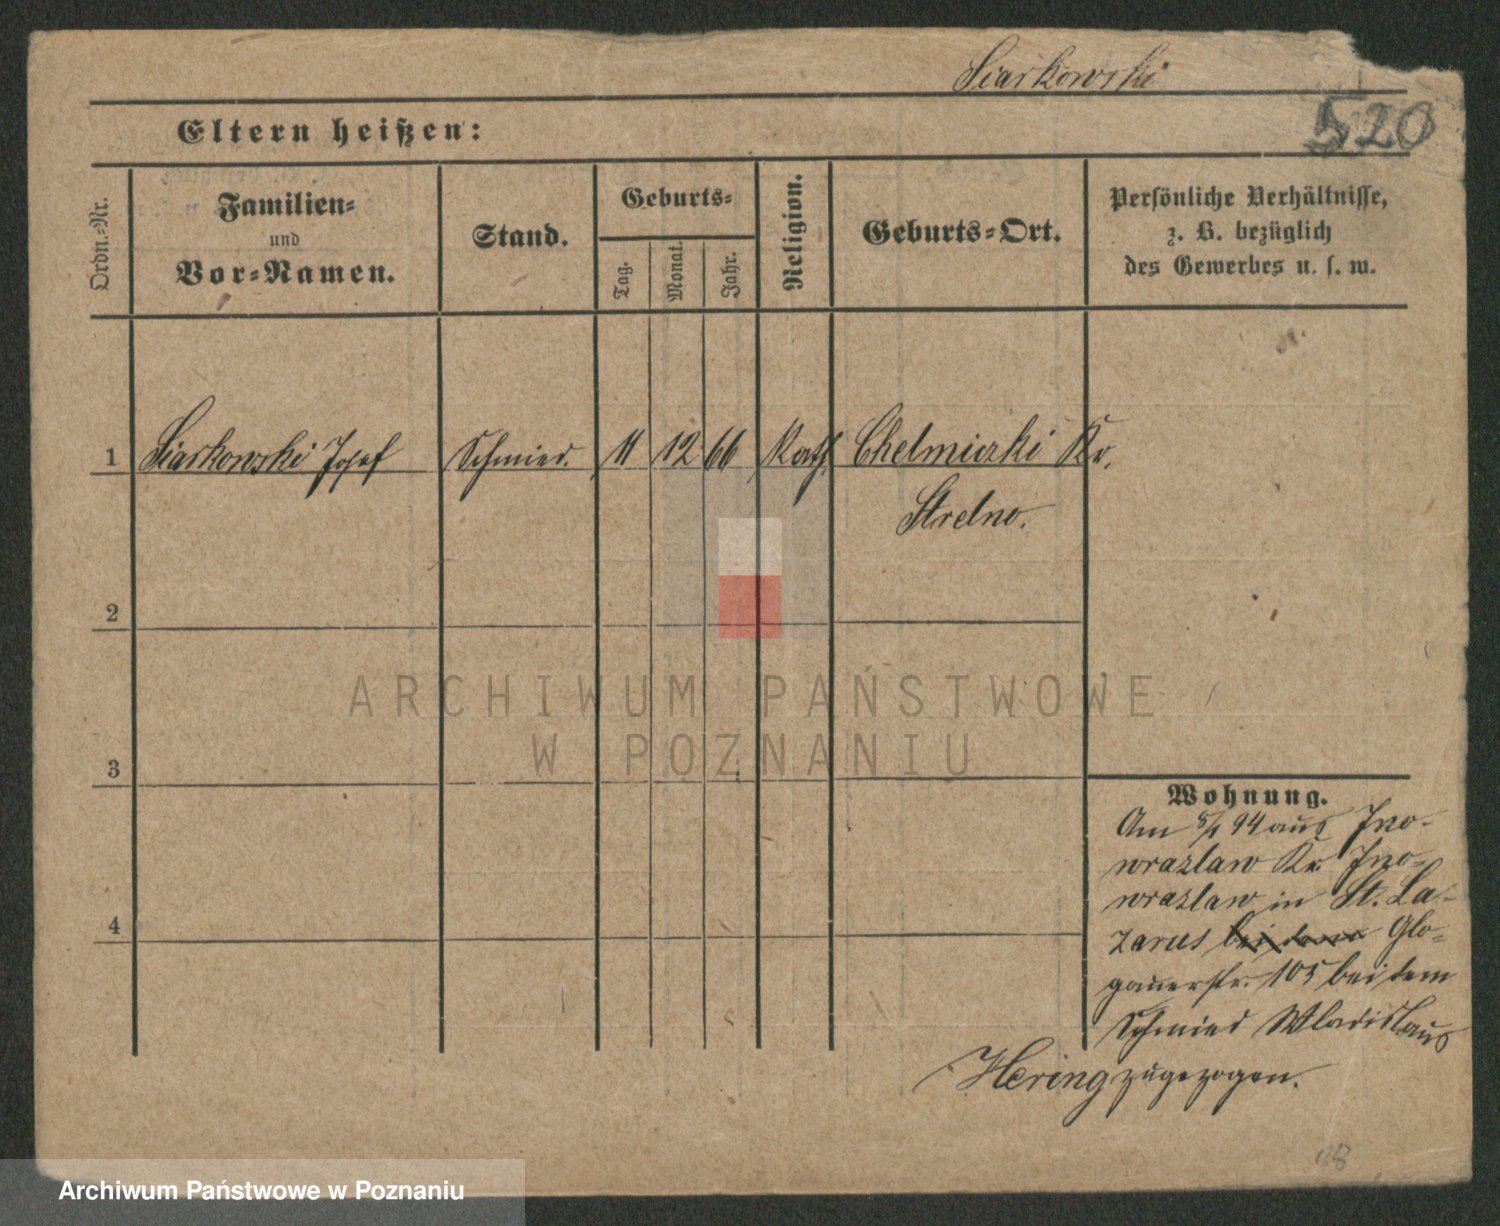 Siarkowski
520
Eltern heißen:
Ordn.-Nr.
Familien-
und
Vor-Namen.
Stand.
Geburts-
Tag.
Monat.
Jahr.
Religion.
Geburts-Ort.
Persönliche Verhältnisse,
z. B. bezüglich
des Gewerbes u. s. w.
1 Siarkowski Josef Schmied. 11 12 66 Kath. Chelmiczki Kr.
Strelno.
2
3
4
Wohnung.
Am 94 aus Ino-
wrazlaw Kr. Ino-
wrazlaw in St. La-
zarus bei dem Glo-
gauerstr. 105 bei dem
Schmied Wladislaus
Hering zugezogen.
ARCHIWUM PAŃSTWOWE
W POZNANIU
Archiwum Państwowe w Poznaniu